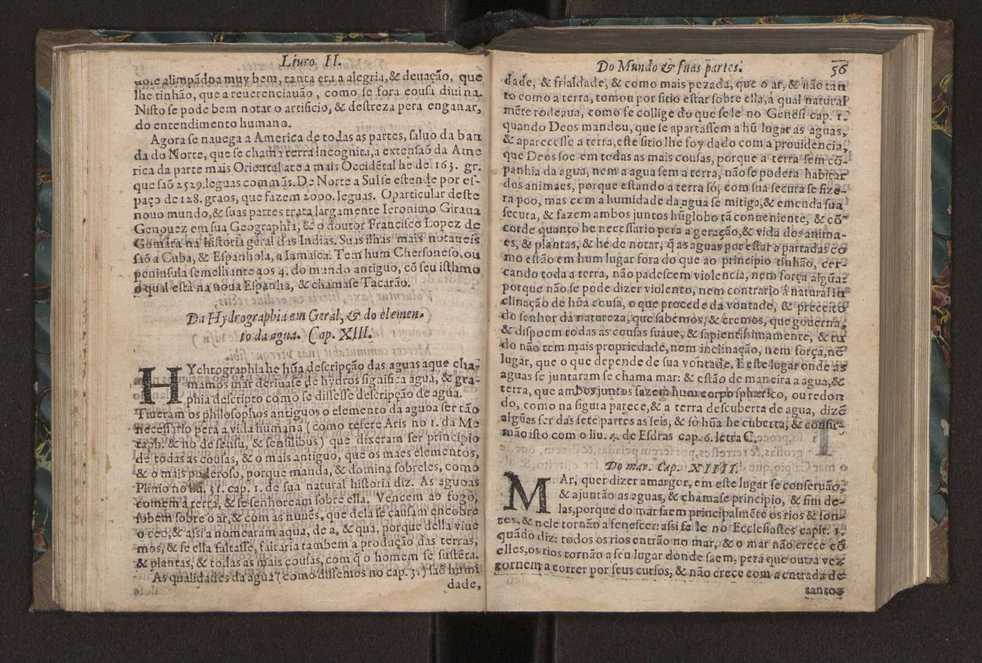 Liuro II.
uoie alimpãdoa muy bem, tanta era a alegria, & deuação, que
lhe tinhão, que a reuerenciauão, como se fora cousa diuina.
Nisto se pode bem notar o artificio, & destreza pera enganar,
do entendimento humano.
Agora se nauega a America de todas as partes, saluo da ban
da do Norte, que se chama terra incognita, a extensaõ da Ame
rica da parte mais Oriental ate a mais Occidẽtal he de 163. gr.
que saõ 2529. leguas commũs. De Norte a Sul se estende por es-
paço de 128. graos, que fazem 2000. leguas. O particular deste
nouo mundo, & suas partes trata largamente Ieronimo Giraua
Genouez em sua Geographia, & o doutor Francisco Lopez de
Gomara na historia géral das Indias. Suas ilhas mais notaueis
saõ a Cuba, & Espanhola, a Iamaica. Tem hum Chersoneso, ou
peninsula semelhante aos 4. do mundo antiguo, cõ seu isthmo
o qual está na noua Espanha, & chamase Tacarão.
Da Hydrographia em Geral, & do elemen-
to da agua. Cap. XIII.
HYchtographia he hũa descripção das aguas a que cha-
mamos mar deriuase de hydros significa agua, & gra-
phia descripto como se dissesse descripção de agua.
Tiueram os philosophos antiguos o elemento da aguoa ser tão
necessario pera a vida humana (como refere Aris no 1. da Me
taph. & no de sensu, & sensilibus) que dixeram ser principio
de todas as cousas, & o mais antiguo, que os maes elementos,
& o mais poderoso, porque manda, & domina sobreles, como
Plinio no liu. 31. cap. 1. de sua natural historia diz. As aguoas
comem a terra, & se senhoream sobre ella. Vencem ao fogo,
sobem sobre o ar, & com as nuuẽs, que dela se causam encobre
o ceo, & assi a nomearam aqua, de a, & qua, porque della viue
mos, & se ella faltasse, faltaria tambem a produção das terras,
& plantas, & todas as mais cousas, com q̃ o homem se sustẽta.
As qualidades da agua (como dissemos no cap. 3.) são humi
dade,
Do Mundo & suas partes.
56
dade, & frialdade, & como mais pezada, que o ar, & não tan
to como a terra, tomou por sitio estar sobre ella, á qual natural
mẽte rodeaua, como se collige do que se le no Genesi cap. 1.
quando Deos mandou, que se apartassem a hũ lugar as aguas,
& aparecesse a terra, este sitio lhe foy dado com a prouidencia,
que Deos soe em todas as mais cousas, porque a terra sem cõ-
panhia da agua, nem a agua sem a terra, não se podera habitar
dos animaes, porque estando a terra só, com sua secura se fize-
ra poo, mas com a humidade da agua se mitiga, & emenda sua
secura, & fazem ambos juntos hũ globo tã conueniente, & cõ-
corde quanto he necessario pera a geração, & vida dos anima-
es, & plantas, & he de notar, q̃ as aguas por estar apartadas co
mo estão em hum lugar fora do que ao principio tinhão, cer-
cando toda a terra, não padescem violencia, nem força algũa:
porque não se pode dizer violento, nem contrario á natural in
clinação de hũa cousa, o que procede da vontade, & preceito
do senhor da natureza, que sabemos, & cremos, que gouerna,
& dispoem todas as cousas suaue, & sapientissimamente, & tu
do não tem mais propriedade, nem inclinação, nem força, nẽ
lugar, que o que depende de sua vontade. E este lugar onde as
aguas se juntaram se chama mar: & estão de maneira a agua, &
terra, que ambos juntos fazem hum corpo spherico, ou redon
do, como na figura parece, & a terra descuberta de agua, dizẽ
algũas ser das sete partes as seis, & só hũa he cuberta, & confir-
mão isto com o liu. 4. de Esdras cap. 6. letra C.
Do mar. Cap. XIIII.
MAr, quer dizer amargor, em este lugar se conseruão,
& ajuntão as aguas, & chamase principio, & fim de-
las, porque do mar saem principalmẽte os rios & fon-
tes, & nele tornão a fenescer: assi se le no Ecclesiastes capit. 1.
quãdo diz: todos os rios entrão no mar, & o mar não crece cõ
elles, os rios tornão a seu lugar donde saem, pera que outra vez
tornem a correr por seus cursos, & não crece com a entrada de
tantos